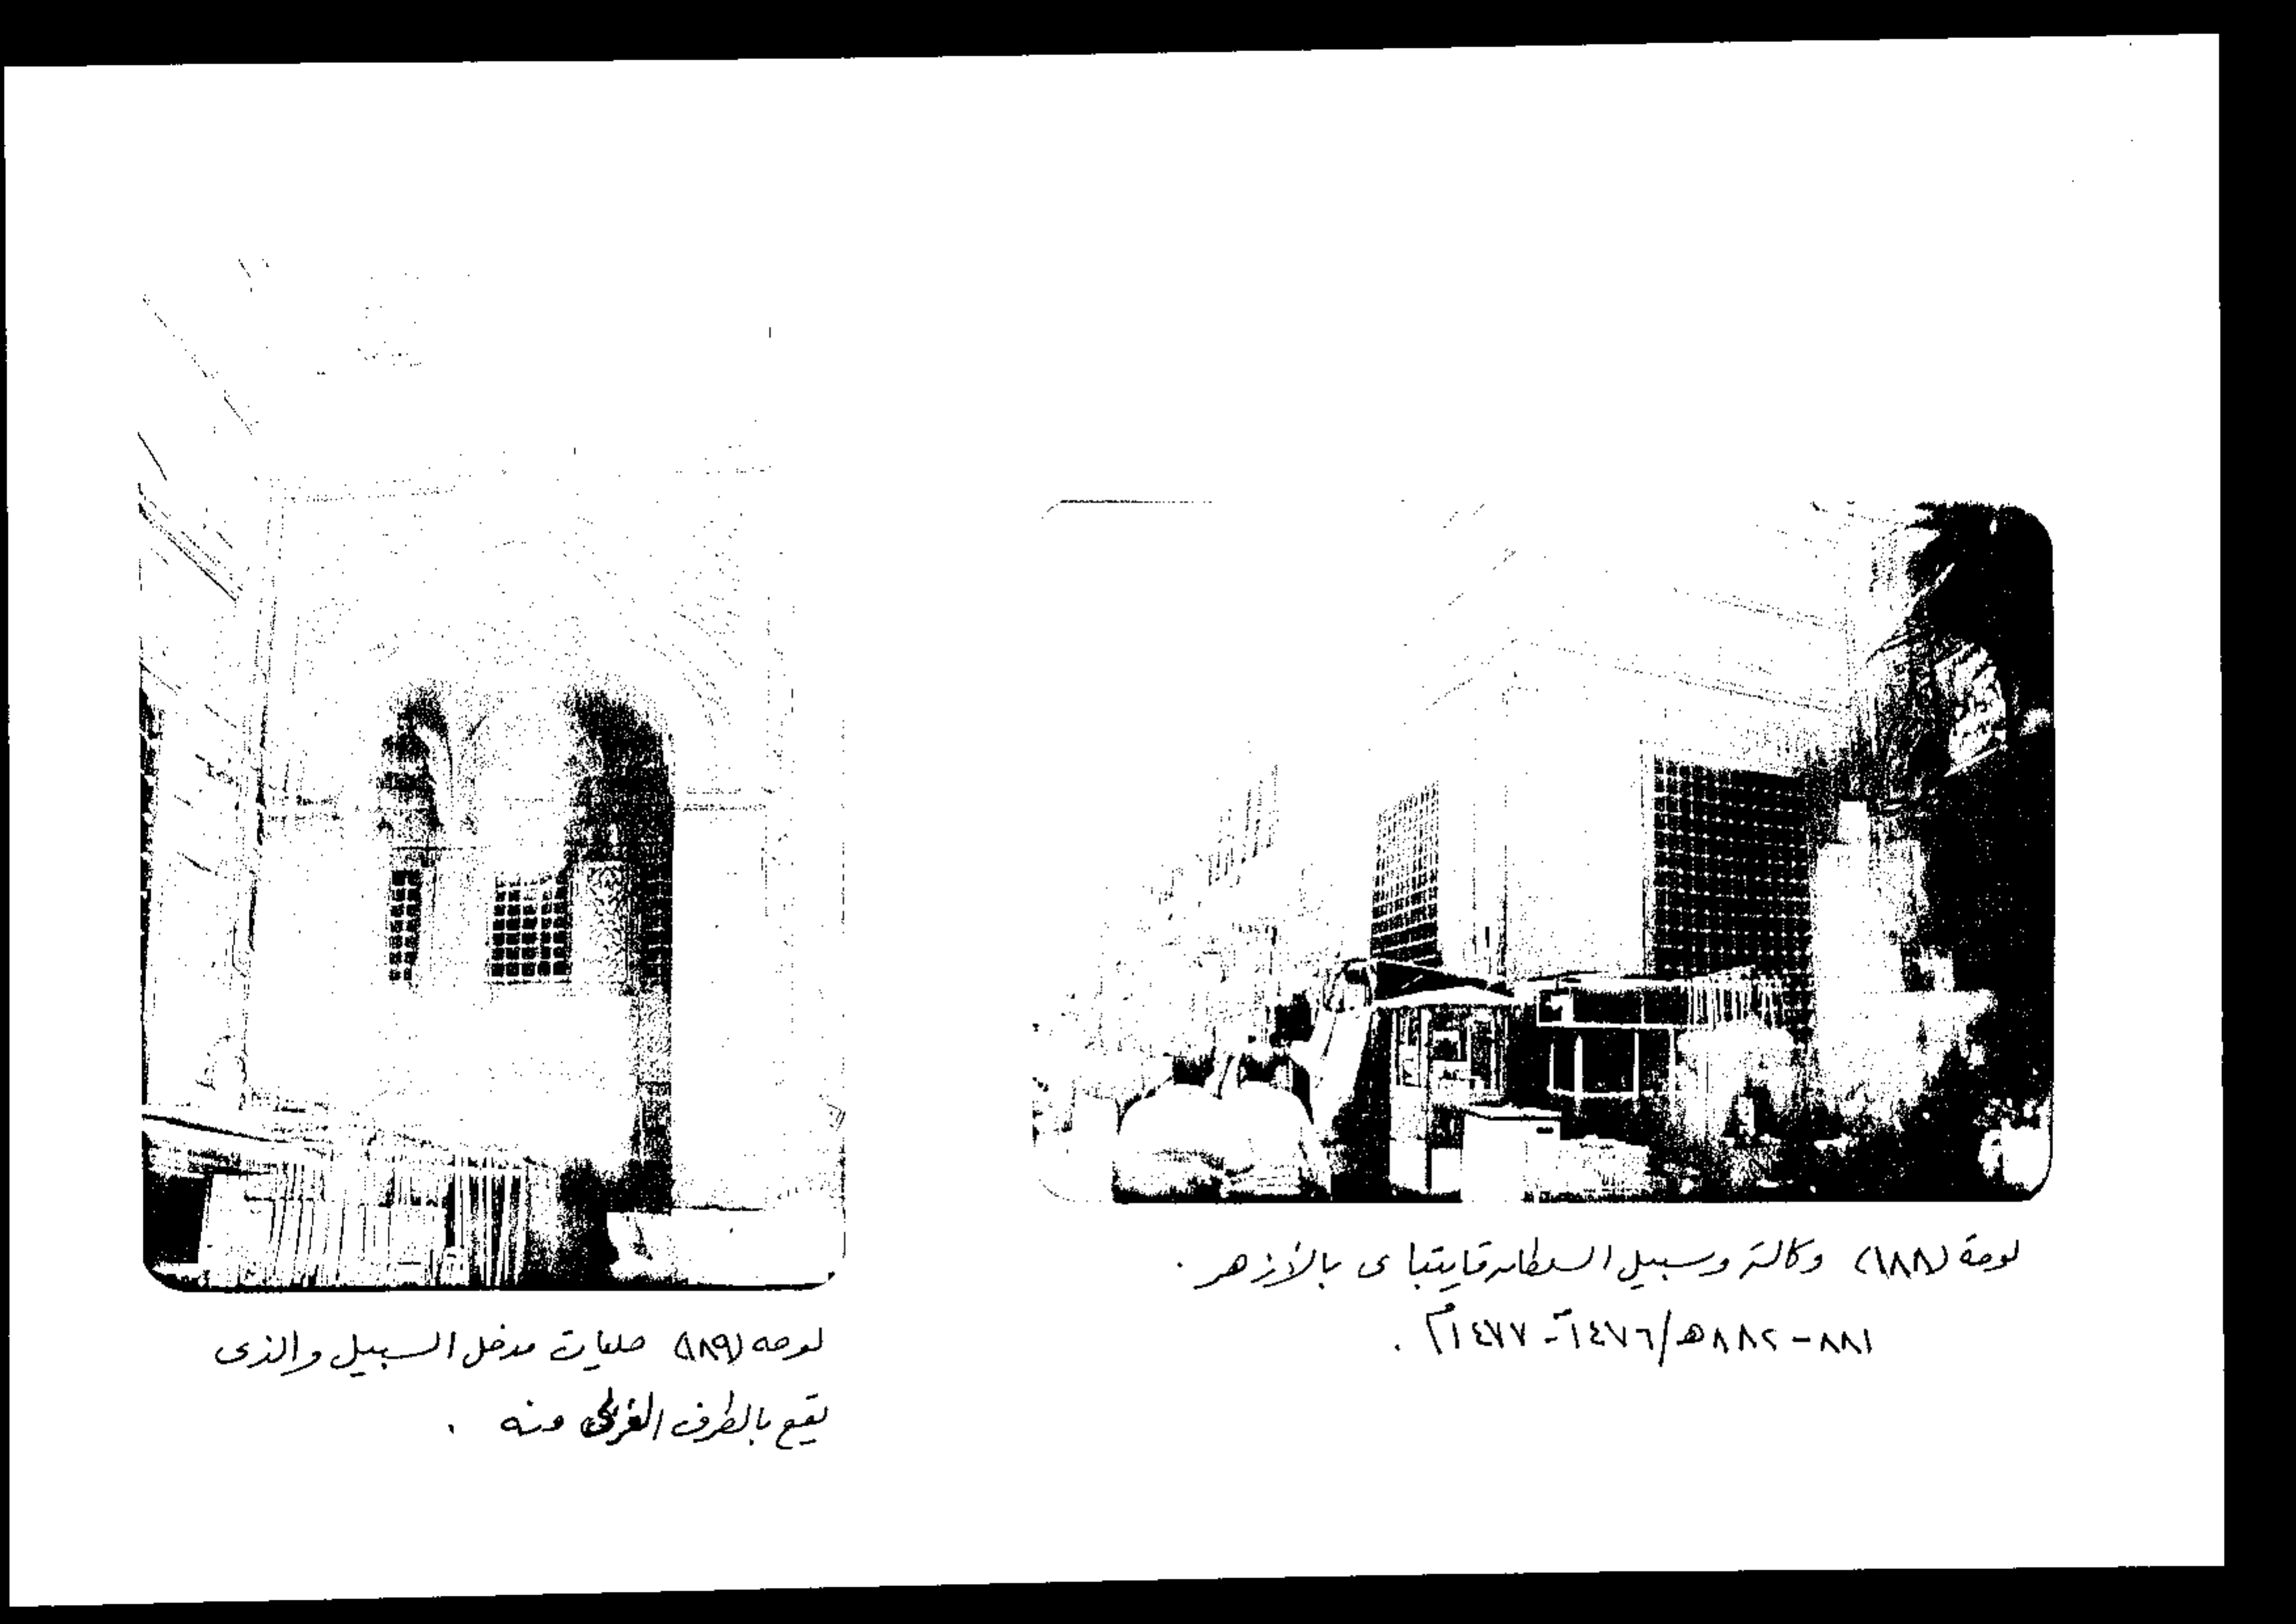 لوحة (١٨٨) وكالة وسبيل السلطان قايتباى بالأزهر .
٨٨١ – ٨٨٢ هـ / ١٤٧٦ – ١٤٧٧ م .
لوحه (١٨٩) حليات مدخل السبيل والذى
يقع بالطرف الغربى منه .